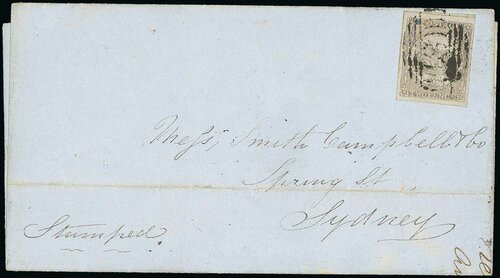 Mess, Smith Campbell & Co
Spring St
Sydney
Stamped